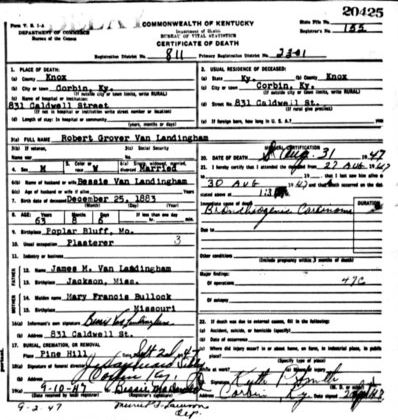 Form V. S. 1-A
DEPARTMENT OF COMMERCE
Bureau of the Census
COMMONWEALTH OF KENTUCKY
Department of Health
BUREAU OF VITAL STATISTICS
CERTIFICATE OF DEATH
State File No. 20425
Registrar's No. 155
Registration District No. 811
Primary Registration District No. 2301
1. PLACE OF DEATH:
(a) County Knox
(b) City or town Corbin, Ky.
(If outside city or town limits, write RURAL)
(c) Name of hospital or institution:
831 Caldwell Street
(If not in hospital or institution write street number or location)
(d) Length of stay: In hospital or community
(years, months or days)
2. USUAL RESIDENCE OF DECEASED:
(a) State Ky. (b) County Knox
(c) City or town Corbin, Ky.
(If outside city or town limits, write RURAL)
(d) Street No. 831 Caldwell St.
(If rural give precinct)
(e) If foreign born, how long in U. S. A.?
3(a) FULL NAME Robert Grover Van Landingham
3(b) If veteran, name war
3(c) Social Security No.
4. Sex M
5. Color or race W
6(a) Single, widowed, married, divorced Married
6(b) Name of husband or wife Bessie Van Landingham
6(c) Age of husband or wife if alive Years
7. Birth date of deceased December 25, 1883
(Month) (Day) (Year)
8. AGE: Years 63 Months 8 Days 6 If less than one day
hr. min.
9. Birthplace Poplar Bluff, Mo.
10. Usual occupation Plasterer 3
11. Industry or business
FATHER
12. Name James M. Van Landingham
13. Birthplace Jackson, Miss.
MOTHER
14. Maiden name Mary Francis Bullock
15. Birthplace Missouri
16(a) Informant's own signature Bessie Van Landingham
(b) Address 831 Caldwell St.
17. BURIAL, CREMATION, OR REMOVAL
Place Pine Hill
18(a) Signature of funeral director
(b) Address Corbin Ky
19(a) 9-10-47
(Date received by local registrar) (Registrar's signature)
9-2-47
MEDICAL CERTIFICATION
20. DATE OF DEATH Aug 31 1947
21. I hereby certify that I attended the deceased from 27 Aug 1947
30 Aug 1947 and that death occurred on the date
stated above at
Immediate cause of death
DURATION
Bronchiogenic Carcinoma
Due to
Other conditions
(Include pregnancy within 3 months of death)
Major findings:
Of operations 47C
Of autopsy
22. If death was due to external causes, fill in the following:
(a) Accident, suicide, or homicide (specify)
(b) Date of occurrence
(c) Where did injury occur? In or about home, on farm, in industrial place, in public
place?
(Specify type of place)
While at work? (d) Means of injury
23. Signature
Address Corbin Ky. Date signed